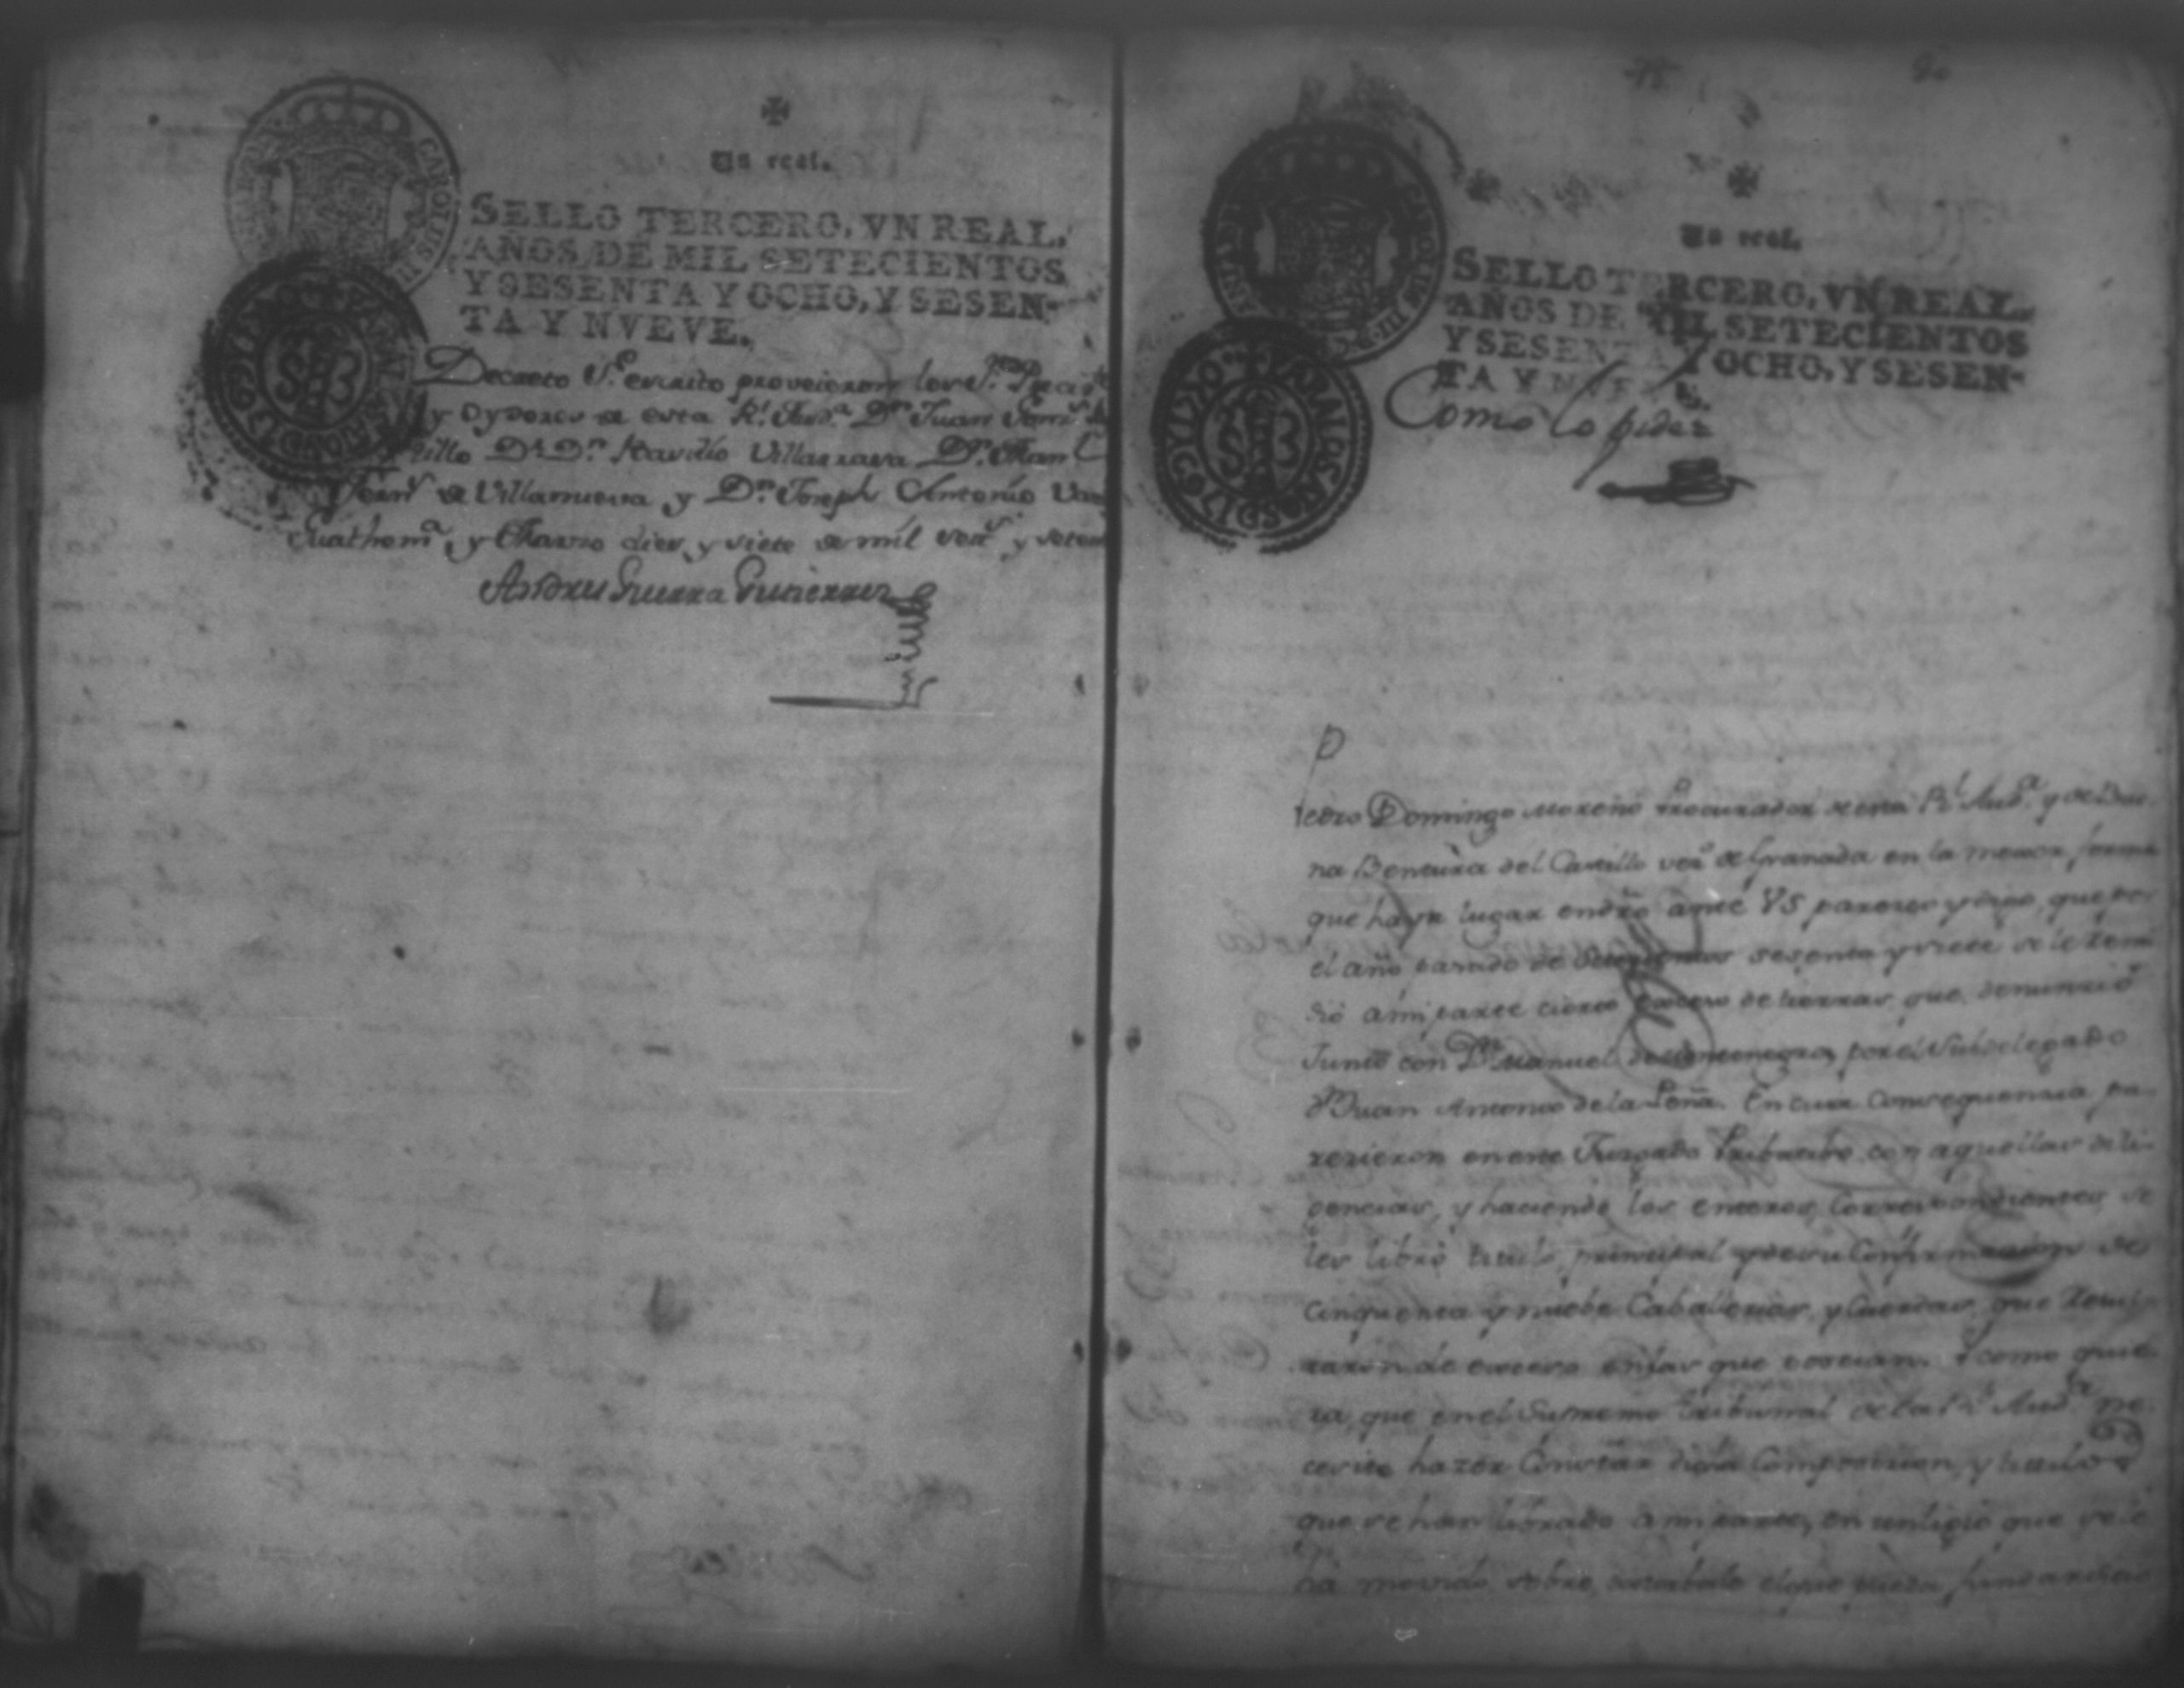 Un real.
SELLO TERCERO, VN REAL,
AÑOS DE MIL SETECIENTOS
Y SESENTA Y OCHO, Y SESEN-
TA Y NVEVE.
Decreto S.e escrito proveieron los S.res
y Oydores de esta R.l Aud.a D.n Juan
D.n Basilio Villarrasa D.n Man.l
Fern.z de Villanueva y D.n Joseph Antonio
Guathem.a y Marzo diez y siete de mil set.s y seten
Andres Guerra Gutierrez
90
Un real.
SELLO TERCERO, VN REAL,
AÑOS DE MIL SETECIENTOS
Y SESENTA Y OCHO, Y SESEN-
TA Y NVEVE.
Como lo pide
P
edro Domingo Moreno Procurador de esta R.l Aud.a y de Dⁿ
na Bentura del Castillo vez.a de Granada en la mexor forma
que haya lugar en dro ante VS paresco y digo, que por
el año pasado de setecientos sesenta y siete se le remi
dio a mi parte cierto exceso de tierras, que denunció
Junto con D.n Manuel de Montenegro, por el Subdelegado
D.n Juan Antonio de la Peña. En cuia Consequencia pa-
rezieron en este Juzgado Pribatibo con aquellas dili-
gencias, y haciendo los enteros Correspondientes, se
les libró titulo principal y de su Confirmacion de
Cinquenta y nuebe Caballerias, y Cuerdas, que
de exceso en las que poseian. Y como quie
ra, que en el Supremo Tribunal de la R.l Aud.a ne-
cesite hazer Constar dicha Composicion, y titulos
que se han librado a mi parte, en un litigio que se le
ha movido sobre